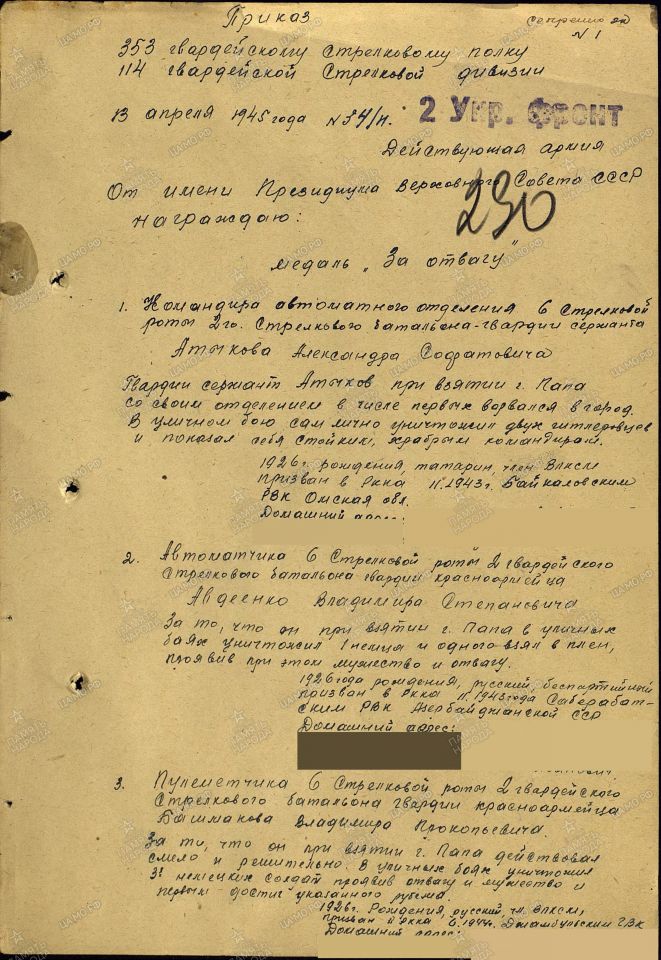 Приказ
секретно эк
N 1
353 гвардейскому стрелковому полку
114 гвардейской Стрелковой дивизии
13 апреля 1945 года N 54/н.
2 Укр. фронт
Действующая армия
От имени Президиума Верховного Совета СССР
230
награждаю:
медаль „За отвагу"
1. Командира автоматного отделения 6 Стрелковой
роты 2го. Стрелкового батальона-гвардии сержанта
Атыкова Александра Софатовича
Гвардии сержант Атыков при взятии г. Папа
со своим отделением в числе первых ворвался в город.
В уличном бою сам лично уничтожил двух гитлеровцев
и показал себя стойким, храбрым командиром.
1926г. рождения, татарин, член ВЛКСМ
призван в РККА 11.1943г. Байкаловским
РВК Омская обл.
Домашний адрес:
2. Автоматчика 6 Стрелковой роты 2 гвардейского
стрелкового батальона гвардии красноармейца
Авдеенко Владимира Степановича
За то, что он при взятии г. Папа в уличных
боях уничтожил 1 немца и одного взял в плен,
проявив при этом мужество и отвагу.
1926 года рождения, русский, беспартийный
призван в РККА 11.1943 года Саберабат-
ским РВК Азербайджанской ССР
Домашний адрес:
3. Пулеметчика 6 Стрелковой роты 2 гвардейского
Стрелкового батальона гвардии красноармейца
Башмакова Владимира Прокопьевича.
За то, что он при взятии г. Папа действовал
смело и решительно. В уличных боях уничтожил
3х немецких солдат проявив отвагу и мужество и
первым достиг указанного рубежа.
1926г. Рождения, русский, чл. ВЛКСМ,
призван в РККА 6.1944г. Джамбульским ГВК
Домашний адрес: